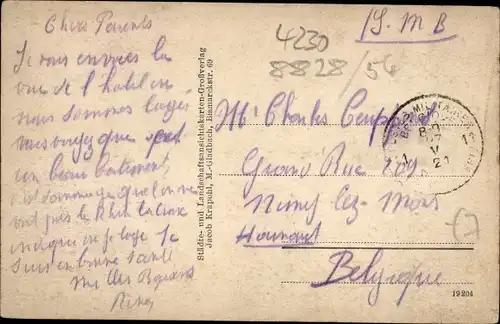 Chers Parents
Je vous envoies la
vue de l'hotel ou
nous sommes loger
vous voyez que c'est
un beau batiment,
c'est dommage que l'on ne
voit pas le Rhin la croix
indique ou je loge Je
suis en bonne santé
Mille Baisers
4230
8828/56
(S. M B
Städte- und Landschaftsansichtskarten-Großverlag
Jacob Krapohl, M.-Gladbach, Bismarckstr. 69
Mr Charles
Grand Rue 209
Nimy lez Mons
Hainaut
Belgique
V
21
19204